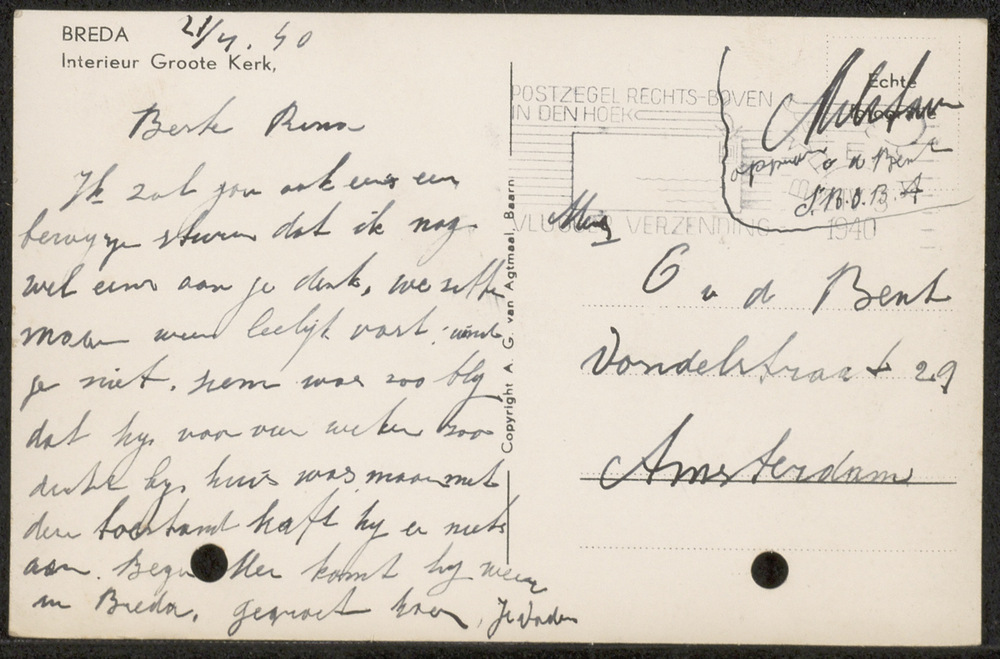 BREDA 21/4.40
Interieur Groote Kerk,
Beste Rinn
Ik zal jou ook eens een
bewijsje sturen dat ik nog
wel eens aan je denk, we zitten
maar weer leelijk vast, vind
je niet. was zoo bly
dat hy voor vier weken zoo
dicht by huis was maar met
den toestand heeft hy er niets
aan. komt hy weer
in Breda, gegroet hoor, Je Vader
Copyright A. G. van Agtmaal, Baarn
POSTZEGEL RECHTS-BOVEN
IN DEN HOEK
VERZENDING
1940
Echte
v d Bent
G v d Bent
Vondelstraat 29
Amsterdam